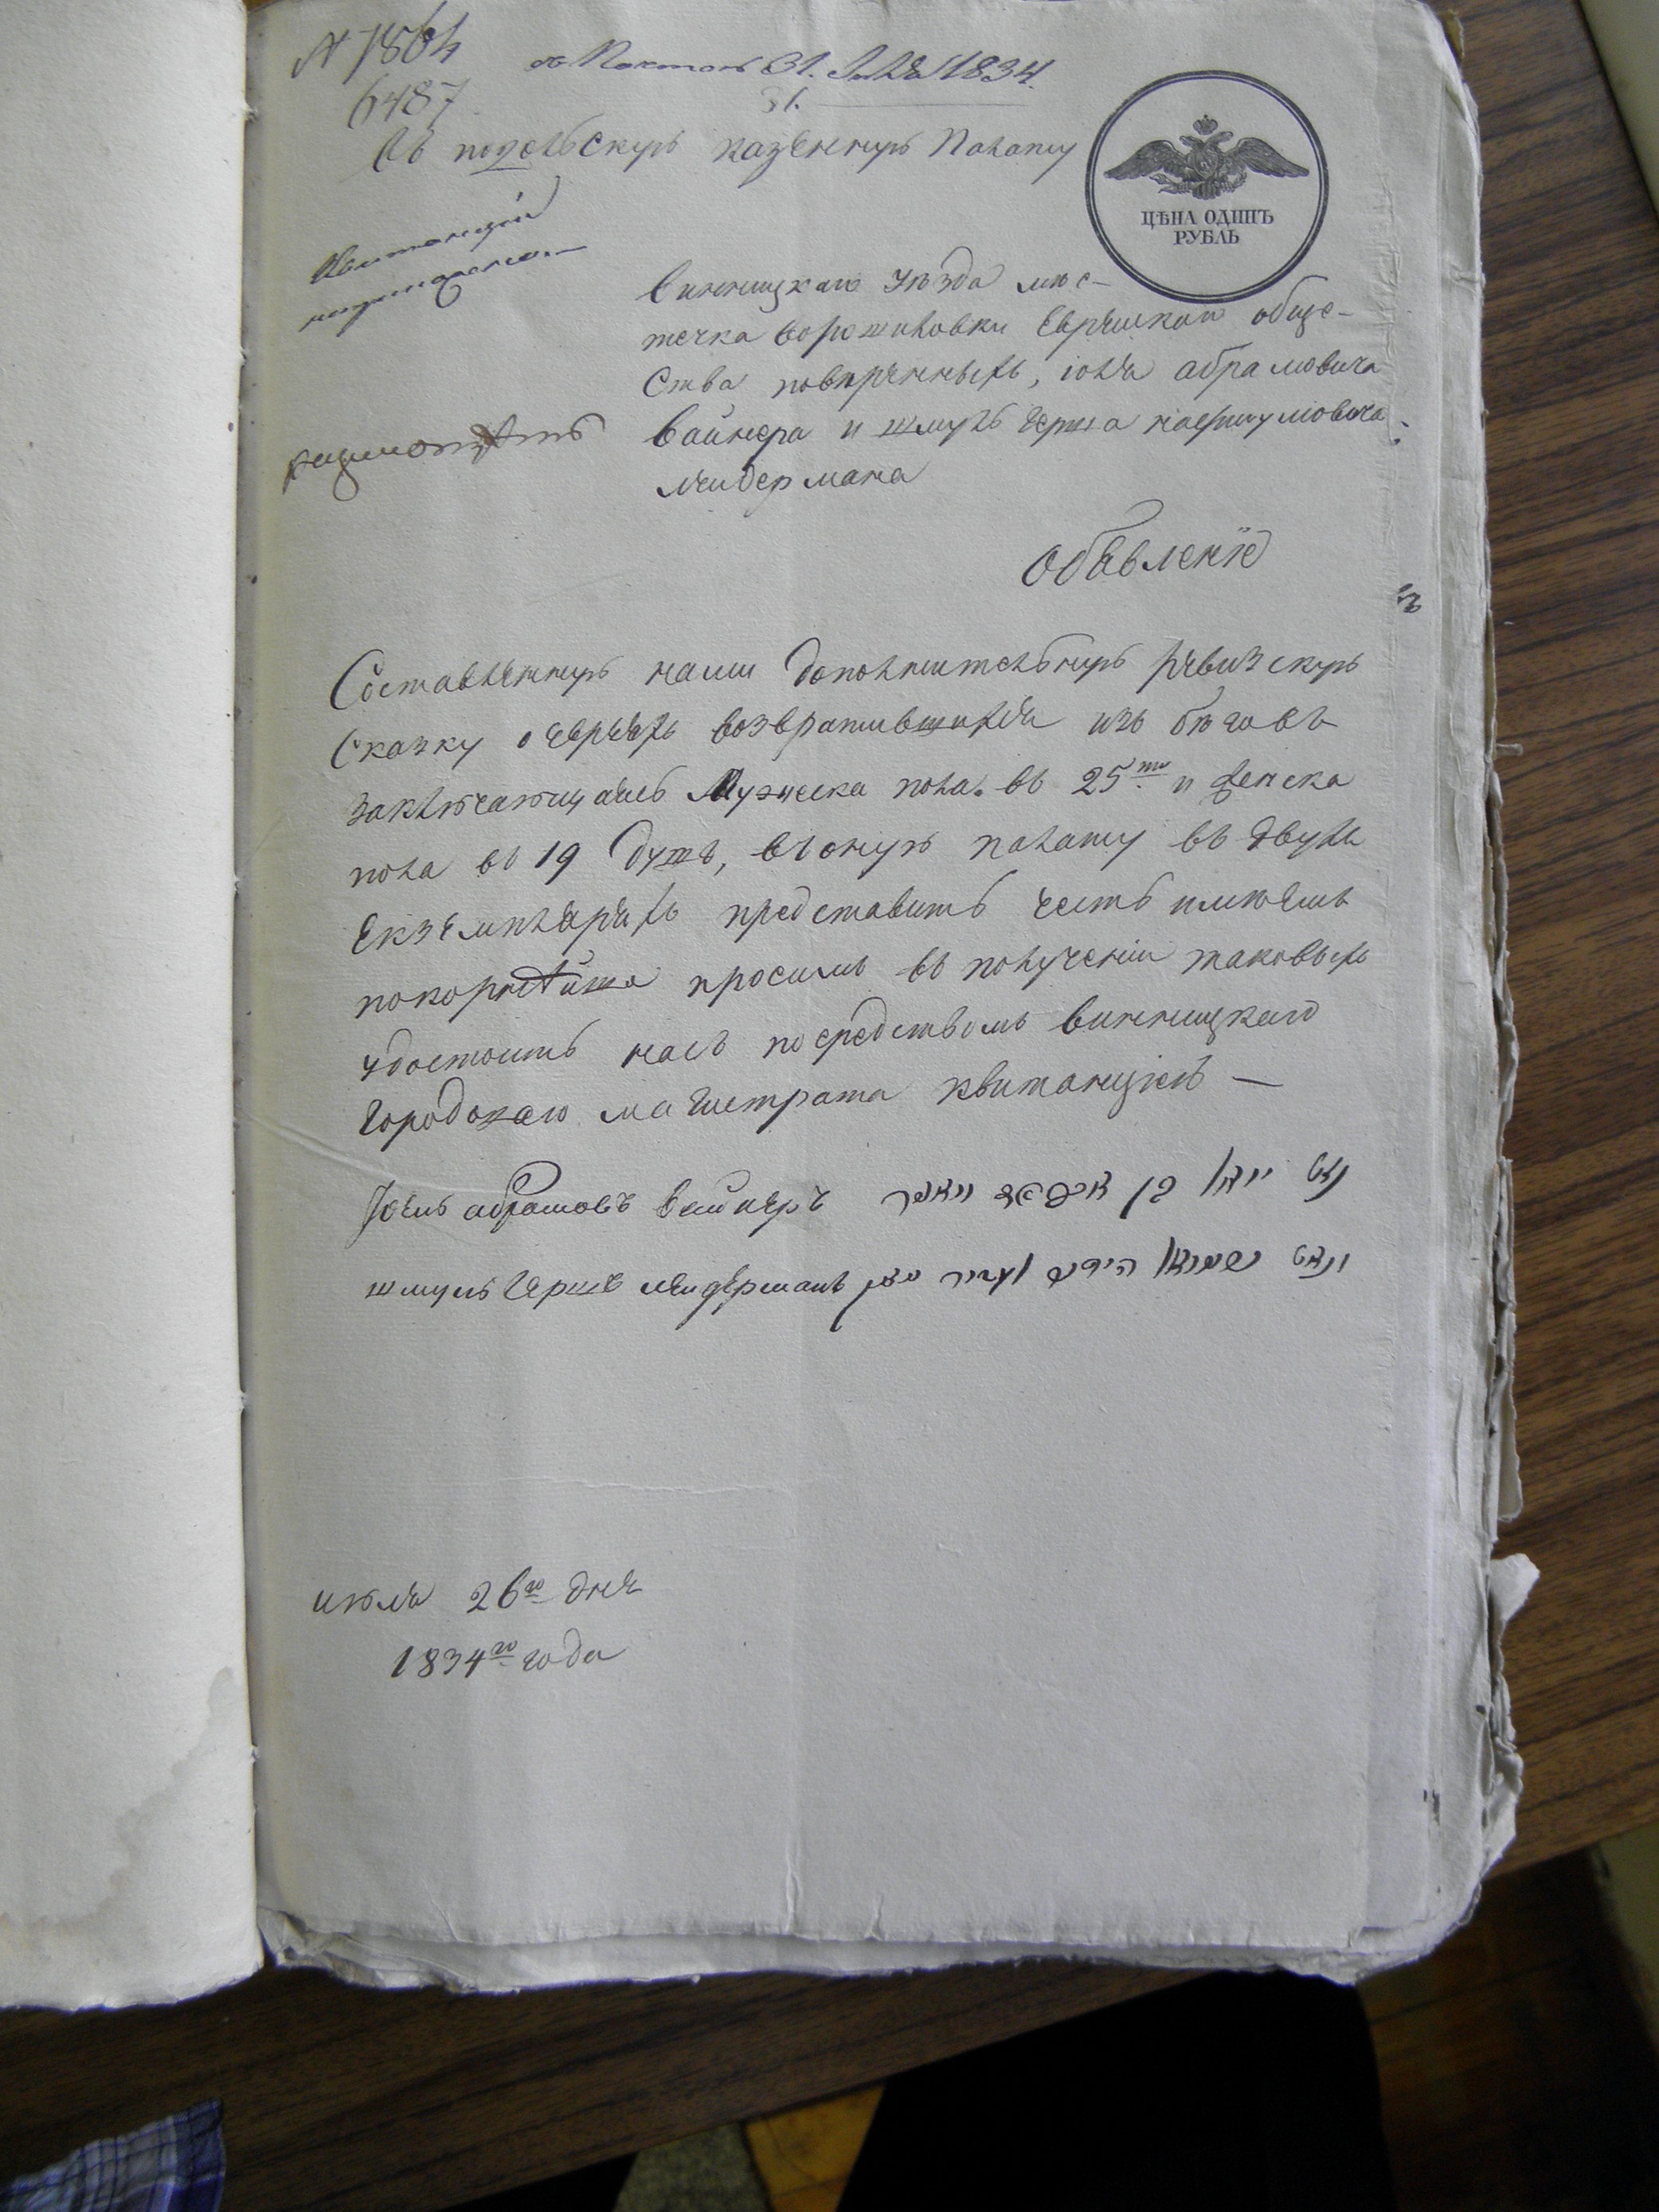 N 7864
6487
31. Июля 1834.
31.
Въ подольскую казенную Палату
ЦѢНА ОДИНЪ
РУБЛЬ
Квитанций
винницкаго уѣзда мѣс-
течка ворошиловки Еврейскаго обще-
Ства повѣренныхъ, іоея абрамовича
вайнера и шмуль герша
лейдермана
Обявленіе
Составленную нами дополнительную ревизскую
Сказку о евреяхъ возвратившихся изъ бѣговъ
заключающаясь Мужеска пола въ 25ти и женска
пола въ 19 душъ, въ оную палату въ двухъ
екземплярахъ представить честь имѣемъ
покорнѣйше просимъ въ полученіи таковыхъ
удостоить насъ посредствомъ винницкаго
городскаго магистрата квитанціею —
Іоель абрамовъ вайнеръ
шмуль Гершъ лейдерманъ
июля 26го дня
1834го года